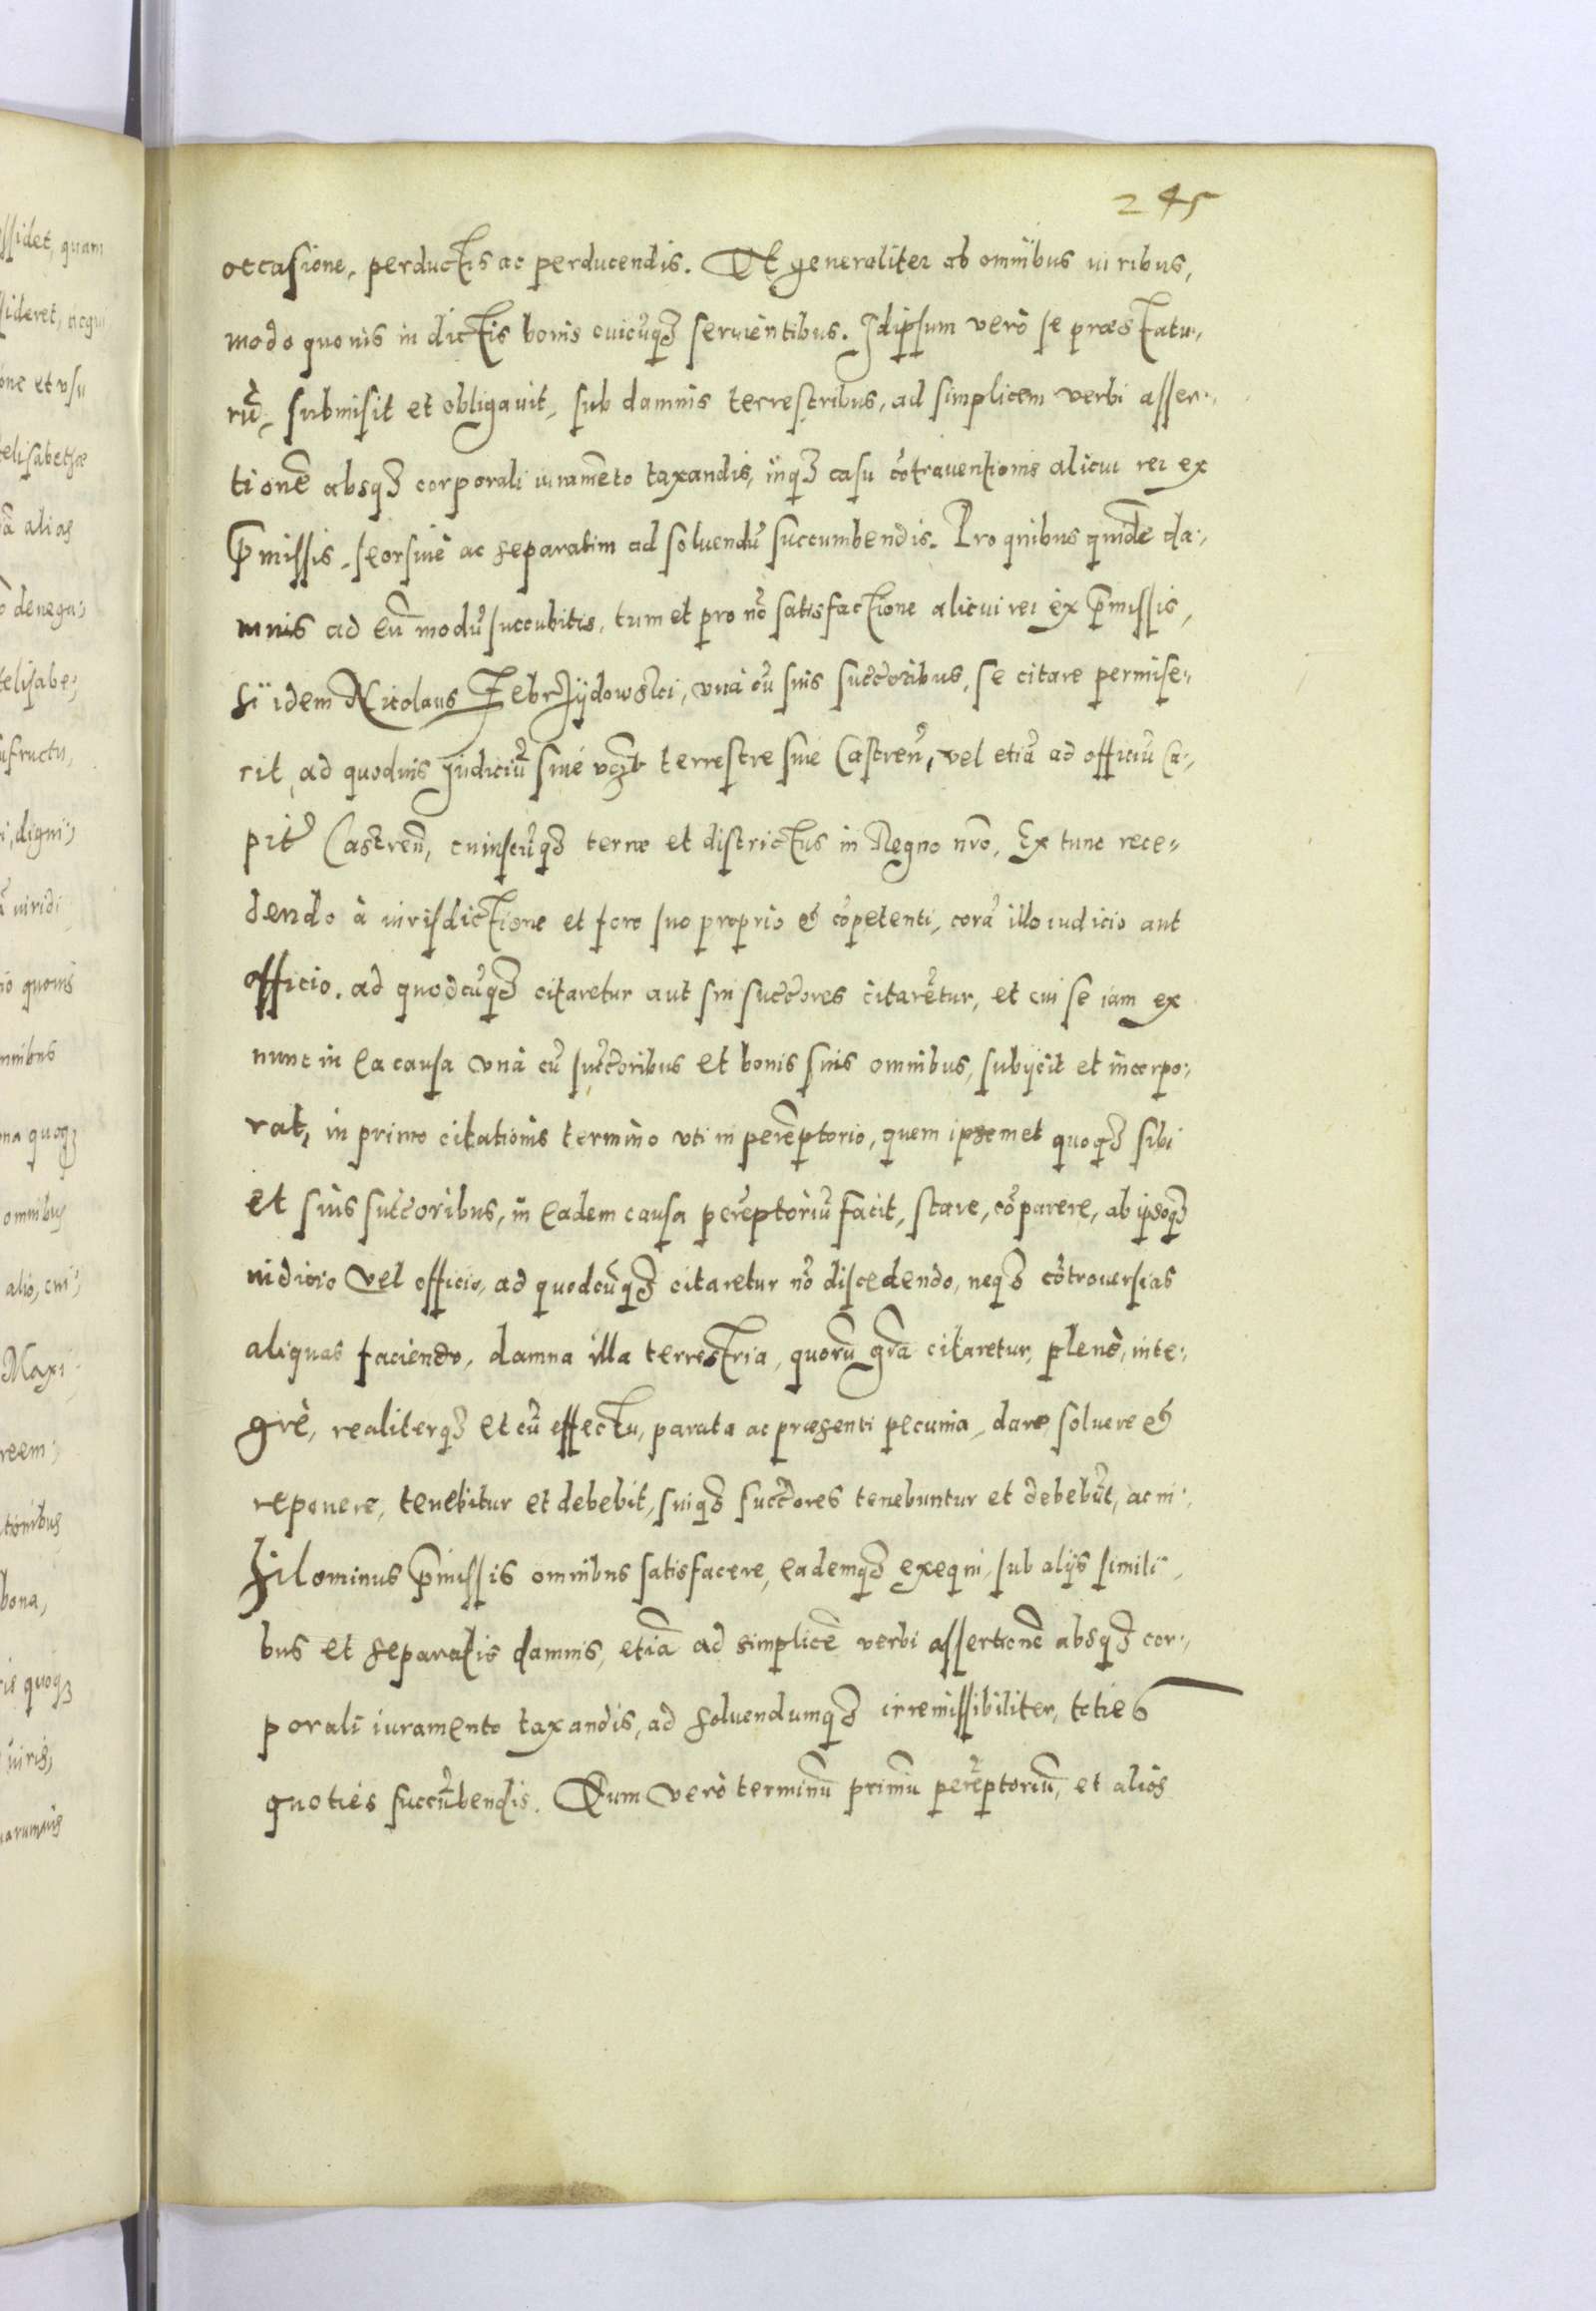 245
occasione, perductis ac perducendis. Et generaliter ab omnibus iuribus,
modo quovis in dictis bonis cuicūq₃ seruientibus. Idipsum verò se præstatu„
rū, submisit et obligauit, sub damnis terrestribus, ad simplicem verbi asser„
tionē absq₃ corporali iuramēto taxandis, inq₃ casu cōtrauentionis alicui rei ex
p̄missis, seorsiuè ac separatim ad soluendū succumbendis. Pro quibus quidē da„
mnis ad eū modū succubitis, tum et pro nō satisfactione alicui rei ex p̄missis,
si idem Nicolaus Zebrzÿdowski, vnà cū suis succ̄oribus, se citare permise„
rit, ad quoduis Judiciū siue terrestre siue Castreñ, vel etiā ad officiū Ca„
pit̄ Castreñ, cuiuscūq₃ terræ et districtus in Regno nr̄o, Ex tunc rece„
dendo à iurisdictione et foro suo proprio & cōpetenti, corā illo iudicio aut
officio, ad quodcūq₃ citaretur aut sui succ̄ores citarētur, et cui se iam ex
nunc in ea causa vnà cū succ̄oribus et bonis suis omnibus, subijcit et incorpo„
rat, in primo citationis termino vti in perēptorio, quem ipsemet quoq₃ sibi
et suis succ̄oribus, in eadem causa perēptoriū facit, stare, cōparere, ab ipsoq₃
iudicio vel officio, ad quodcūq₃ citaretur nō discedendo, neq₃ cōtrouersias
aliquas faciendo, damna illa terrestria, quorū gr̄a citaretur, plenè, inte„
grè, realiterq₃ et cū effectu, parata ac præsenti pecunia, dare, soluere &
reponere, tenebitur et debebit, suiq₃ succ̄ores tenebuntur et debebūt, ac ni„
hilominus p̄missis omnibus satisfacere, eademq₃ exequi, sub alijs simili„
bus et separatis damnis, etiā ad simplicē verbi assertionē absq₃ cor„
porali iuramento taxandis, ad soluendumq₃ irremissibiliter, toties
quoties succūbendis. Dum verò terminū primū perēptoriū, et alios